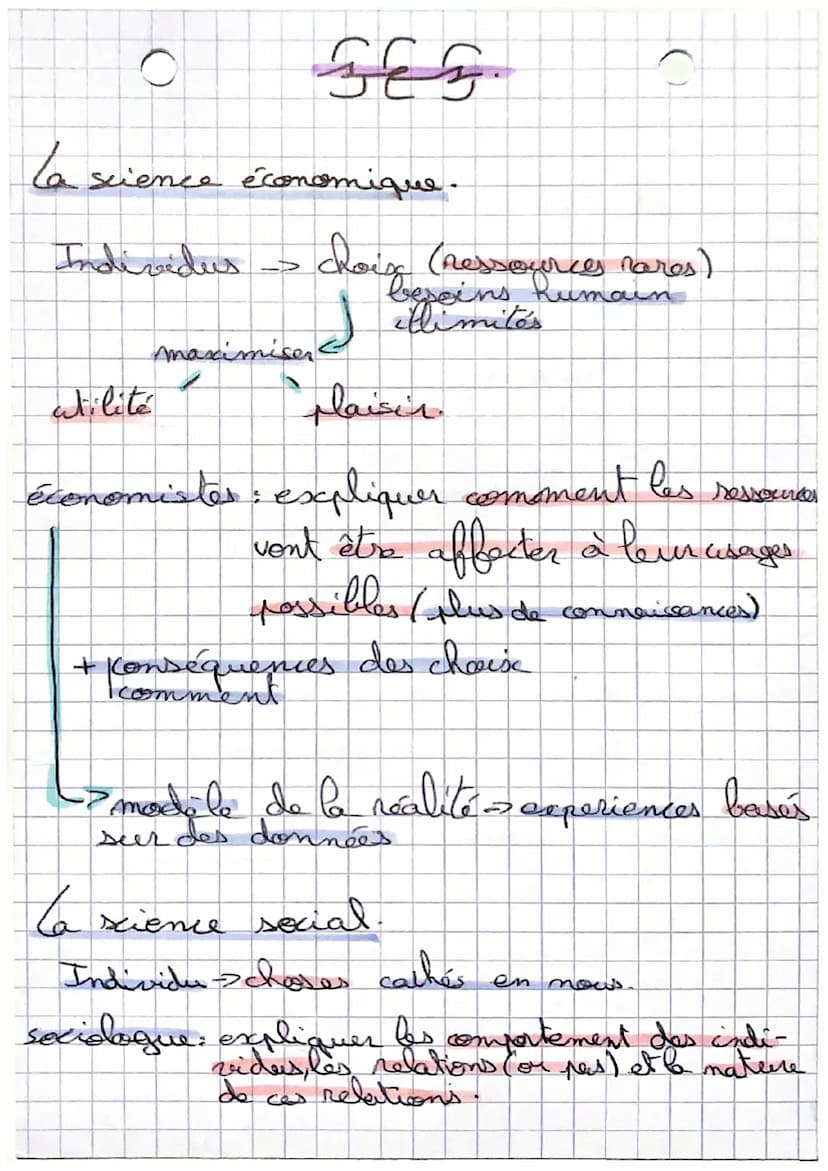 SES.
La science économique.
Individus -> choix (ressources rares)
besoins humain
illimités
maximiser
utilité plaisir.
économistes : expliquer comment les ressources
vont être affecter à leur usages
possibles (plus de connaissances)
+ conséquences des choix
comment
-> modèle de la réalité -> experiences basés
sur des données
La science social.
Individu -> choses cachés en nous.
sociologue : expliquer les comportement des indi-
vidus, les relations (or pas) et la nature
de ces relations.